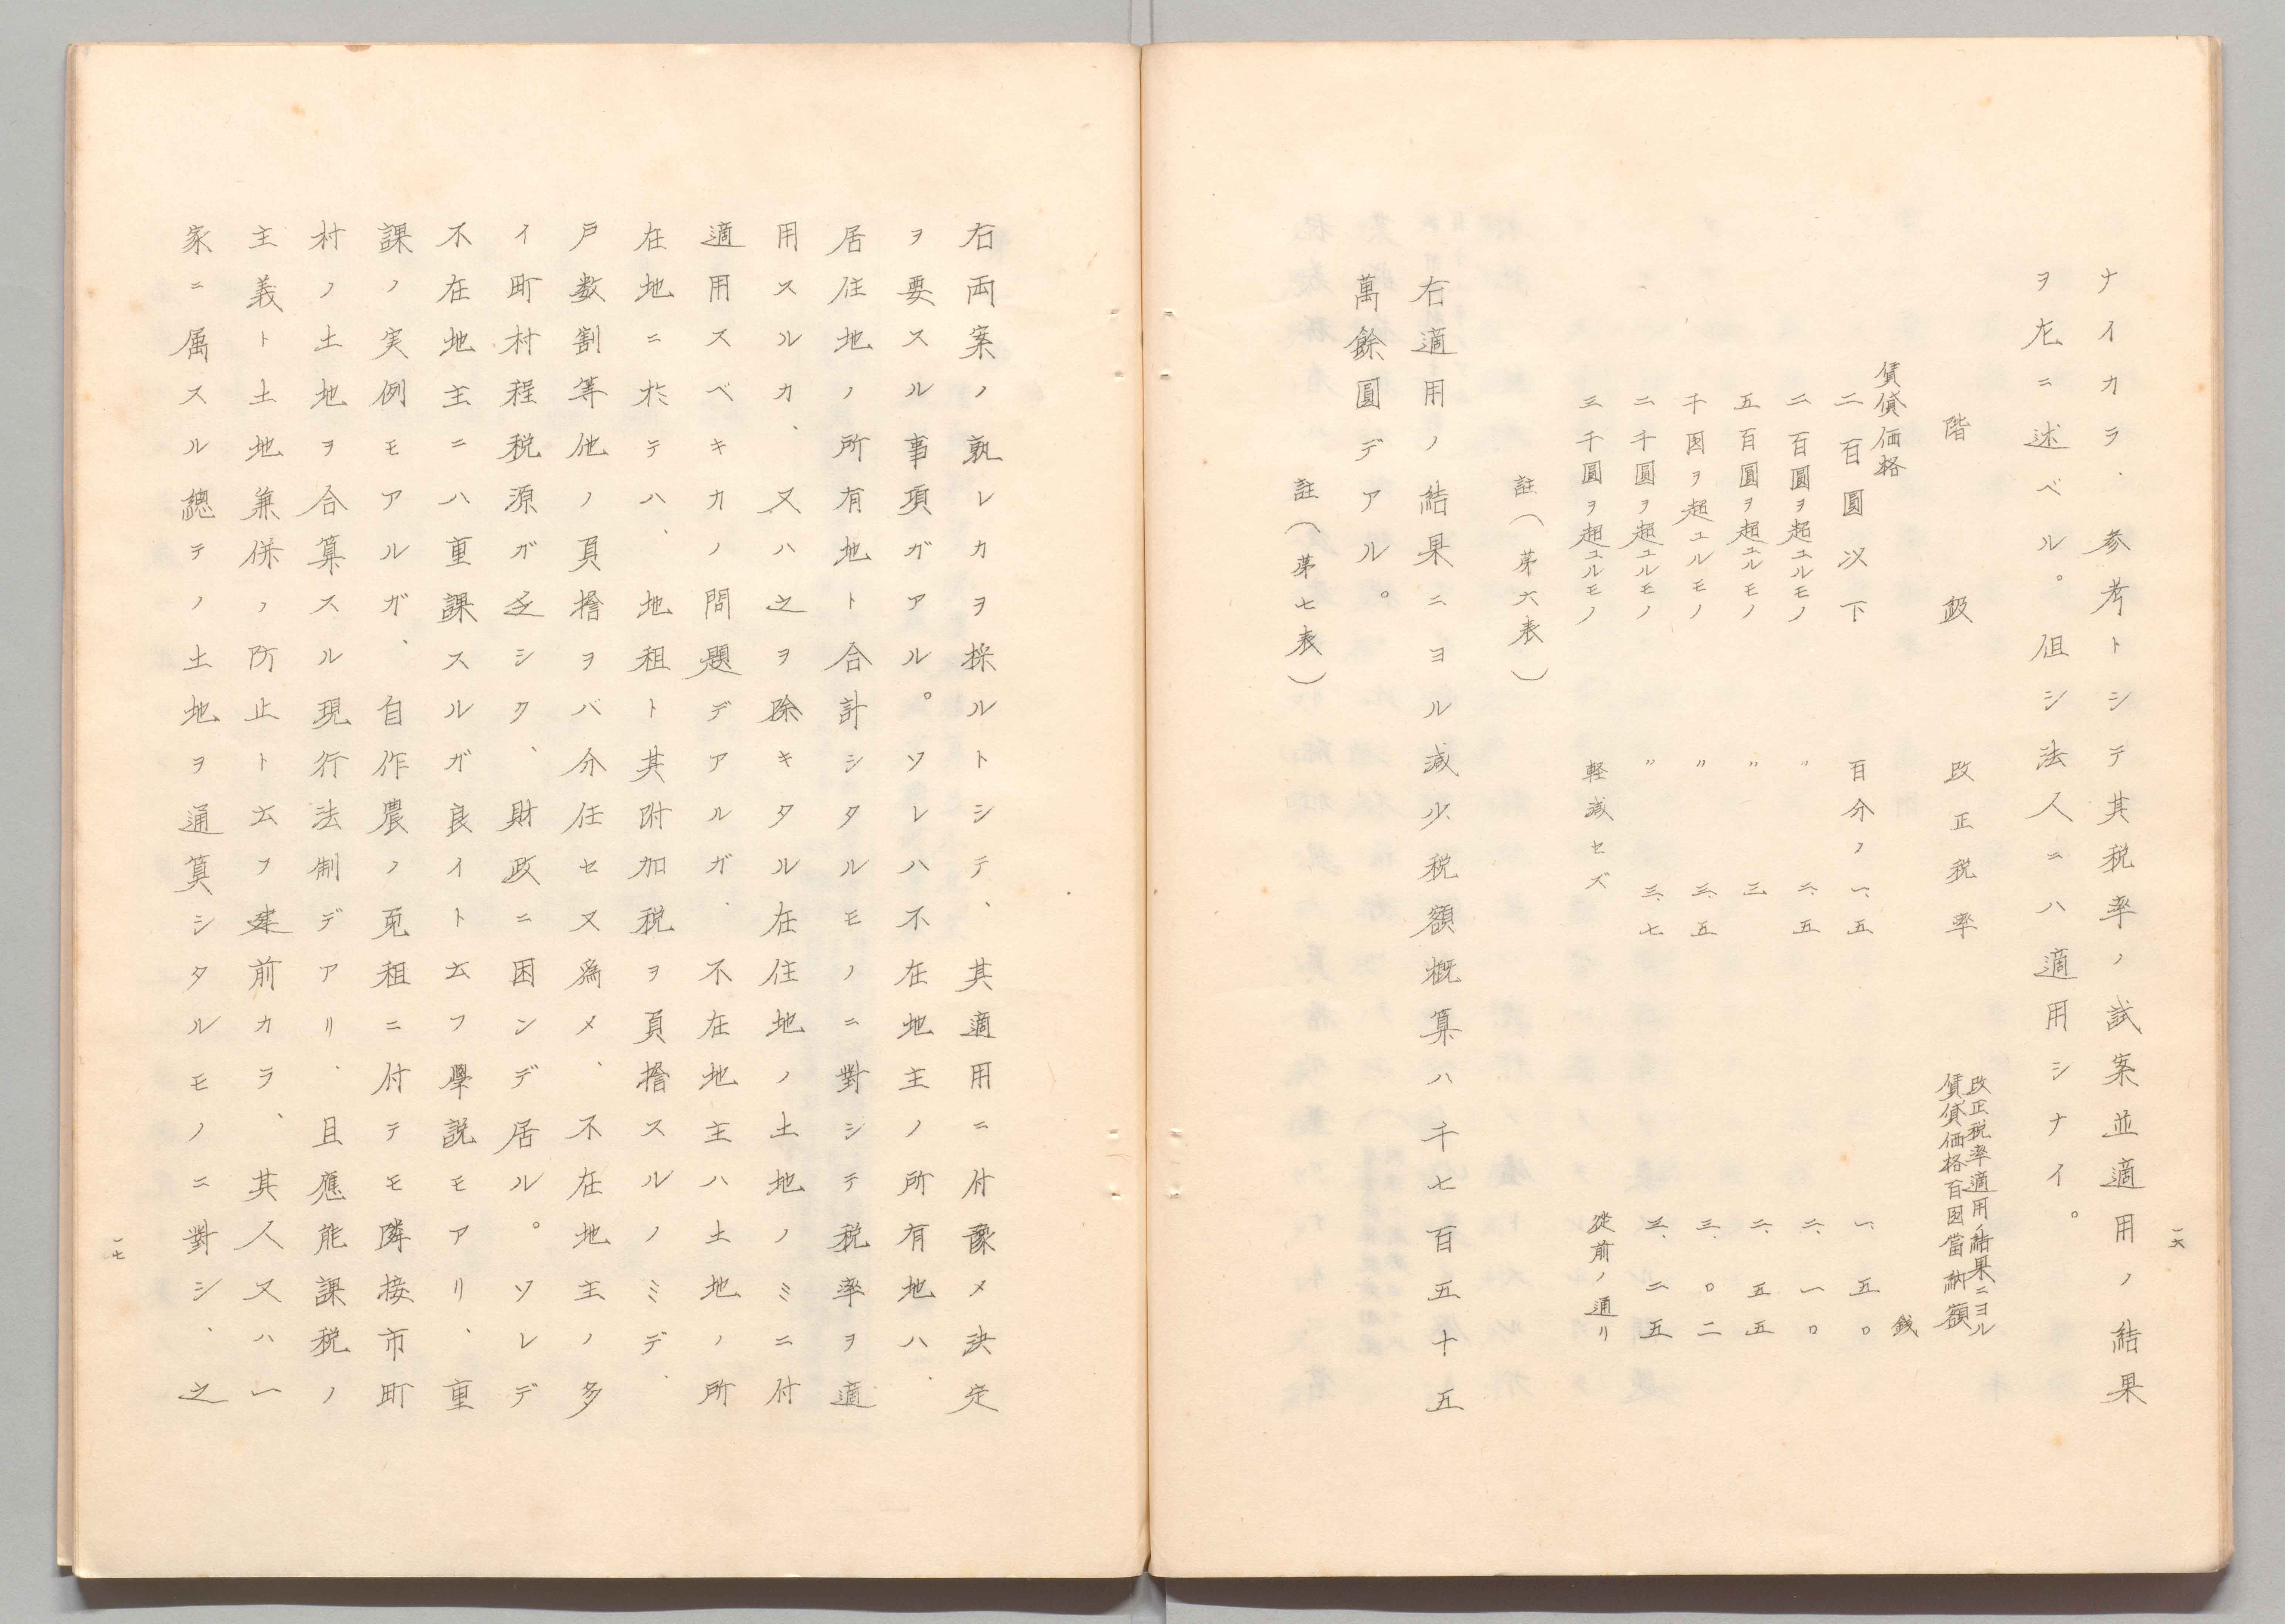 一六
ナイカラ、参考トシテ其税率ノ試案並適用ノ結果
ヲ左ニ述ベル。但シ法人ニハ適用シナイ。
階級
改正税率
改正税率適用ノ結果ニヨル
賃貸価格百円當納額
賃貸価格
銭
二百圓以下 百分ノ一、五 一、五〇
二百圓ヲ超ユルモノ 〃 二、五 二、一〇
五百圓ヲ超ユルモノ 〃 三 二、五五
千円ヲ超ユルモノ 〃 三、五 三、〇二
二千圓ヲ超ユルモノ 〃 三、七 三、二五
三千圓ヲ超ユルモノ 軽減セズ 従前ノ通リ
註(第六表)
右適用ノ結果ニヨル減少税額概算ハ千七百五十五
萬餘圓デアル。
註(第七表)
右両案ノ孰レカヲ採ルトシテ、其適用ニ付豫メ決定
ヲ要スル事項ガアル。ソレハ不在地主ノ所有地ハ、
居住地ノ所有地ト合計シタルモノニ對シテ税率ヲ適
用スルカ、又ハ之ヲ除キタル在住地ノ土地ノミニ付
適用スベキカノ問題デアルガ、不在地主ハ土地ノ所
在地ニ於テハ、地租ト其附加税ヲ負擔スルノミデ、
戸数割等他ノ負擔ヲバ分任セヌ為メ、不在地主ノ多
イ町村程税源ガ乏シク、財政ニ困ンデ居ル。ソレデ
不在地主ニハ重課スルガ良イト云フ學説モアリ、重
課ノ実例モアルガ、自作農ノ免租ニ付テモ隣接市町
村ノ土地ヲ合算スル現行法制デアリ、且應能課税ノ
主義ト土地兼併ノ防止ト云フ建前カラ、其人又ハ一
家ニ属スル總テノ土地ヲ通算シタルモノニ對シ、之
一七